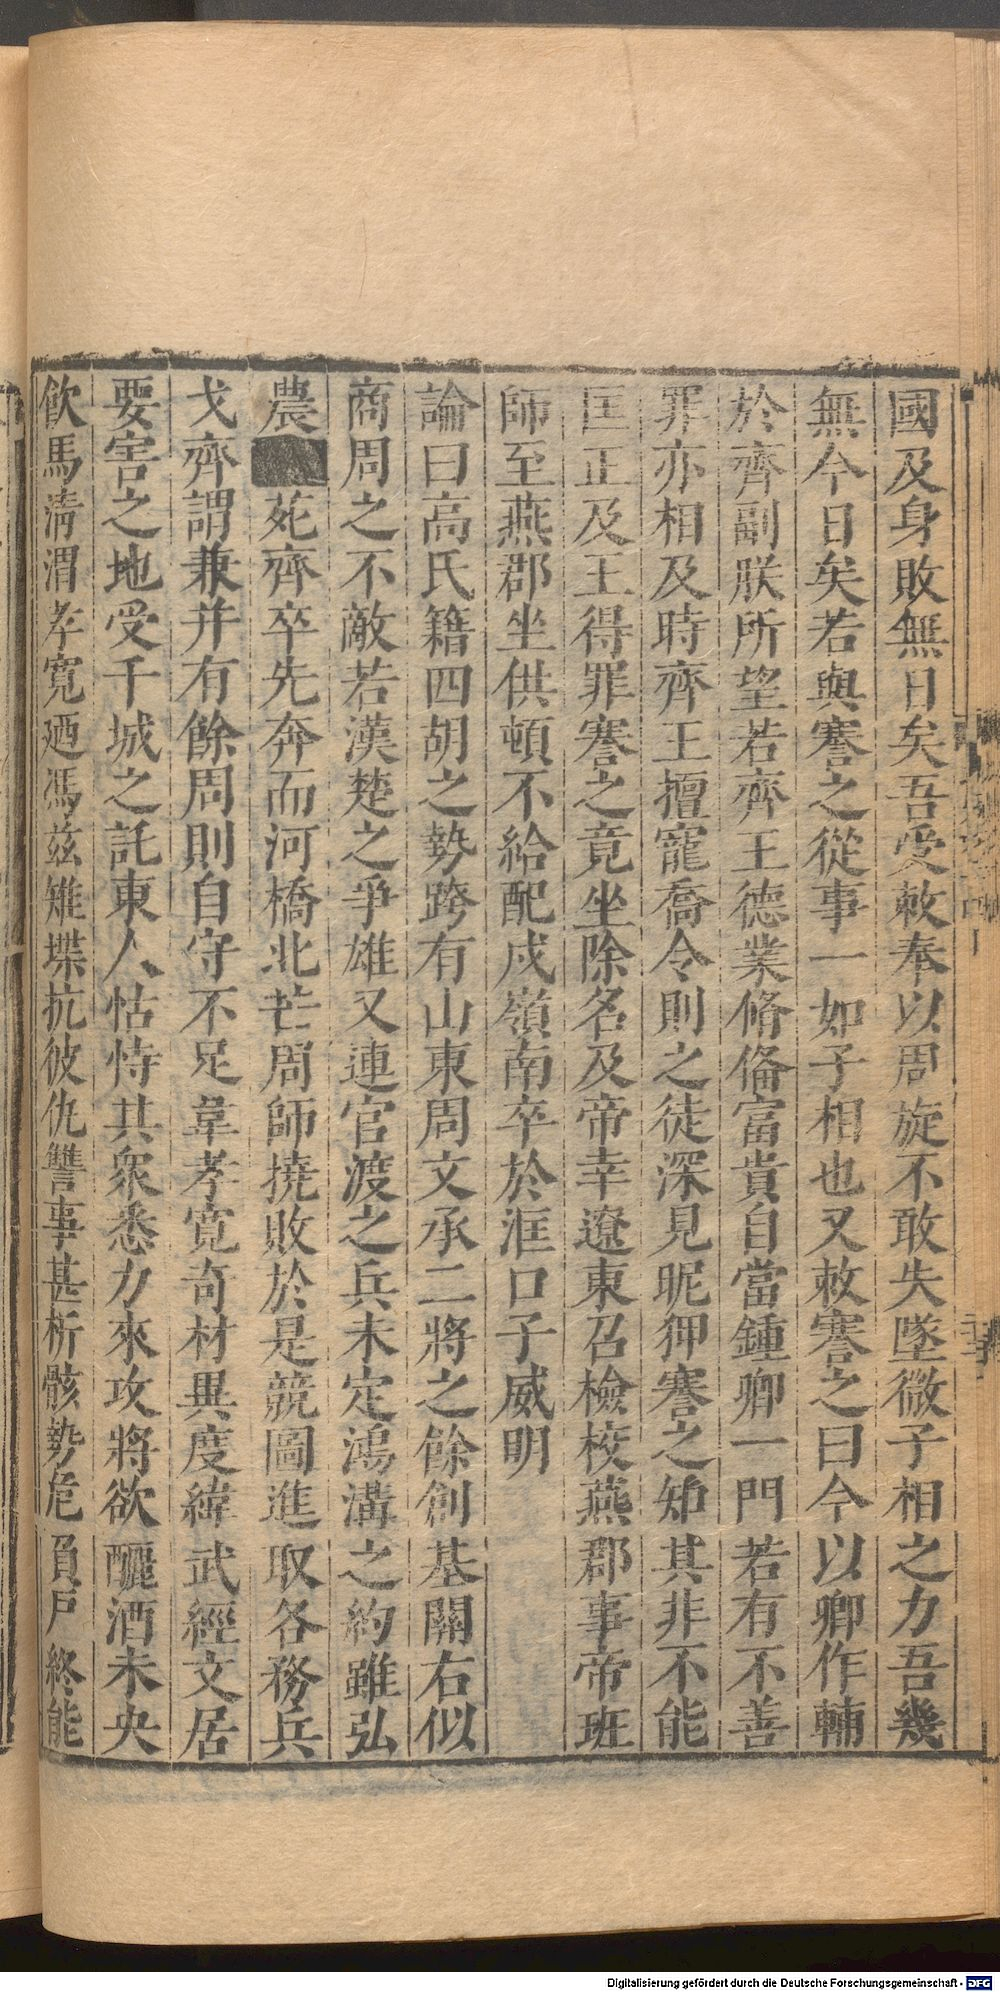 國及身敗無日矣吾受敕奉以周旋不敢失墜微子相之力吾幾
無今日矣若與謇之從事一如子相也又敕謇之曰今以卿作輔
於齊副朕所望若齊王德業脩備富貴自當鍾卿一門若有不善
罪亦相及時齊王擅寵喬令則之徒深見昵狎謇之知其非不能
匡正及王得罪謇之竟坐除名及帝幸遼東召檢校燕郡事帝班
師至燕郡坐供頓不給配戍嶺南卒於洭口子威明
論曰高氏籍四胡之勢跨有山東周文承二將之餘創基關右似
商周之不敵若漢楚之爭雄又連官渡之兵未定鴻溝之約雖弘
農苑齊卒先奔而河橋北芒周師撓敗於是競圖進取各務兵
戈齊謂兼并有餘周則自守不足韋孝寬奇材異度緯武經文居
要害之地受干城之託東人怙恃其眾悉力來攻將欲釃酒未央
飲馬清渭孝寬廼馮茲雉堞抗彼仇讐事甚析骸勢危負戶終能
Digitalisierung gefördert durch die Deutsche Forschungsgemeinschaft - DFG